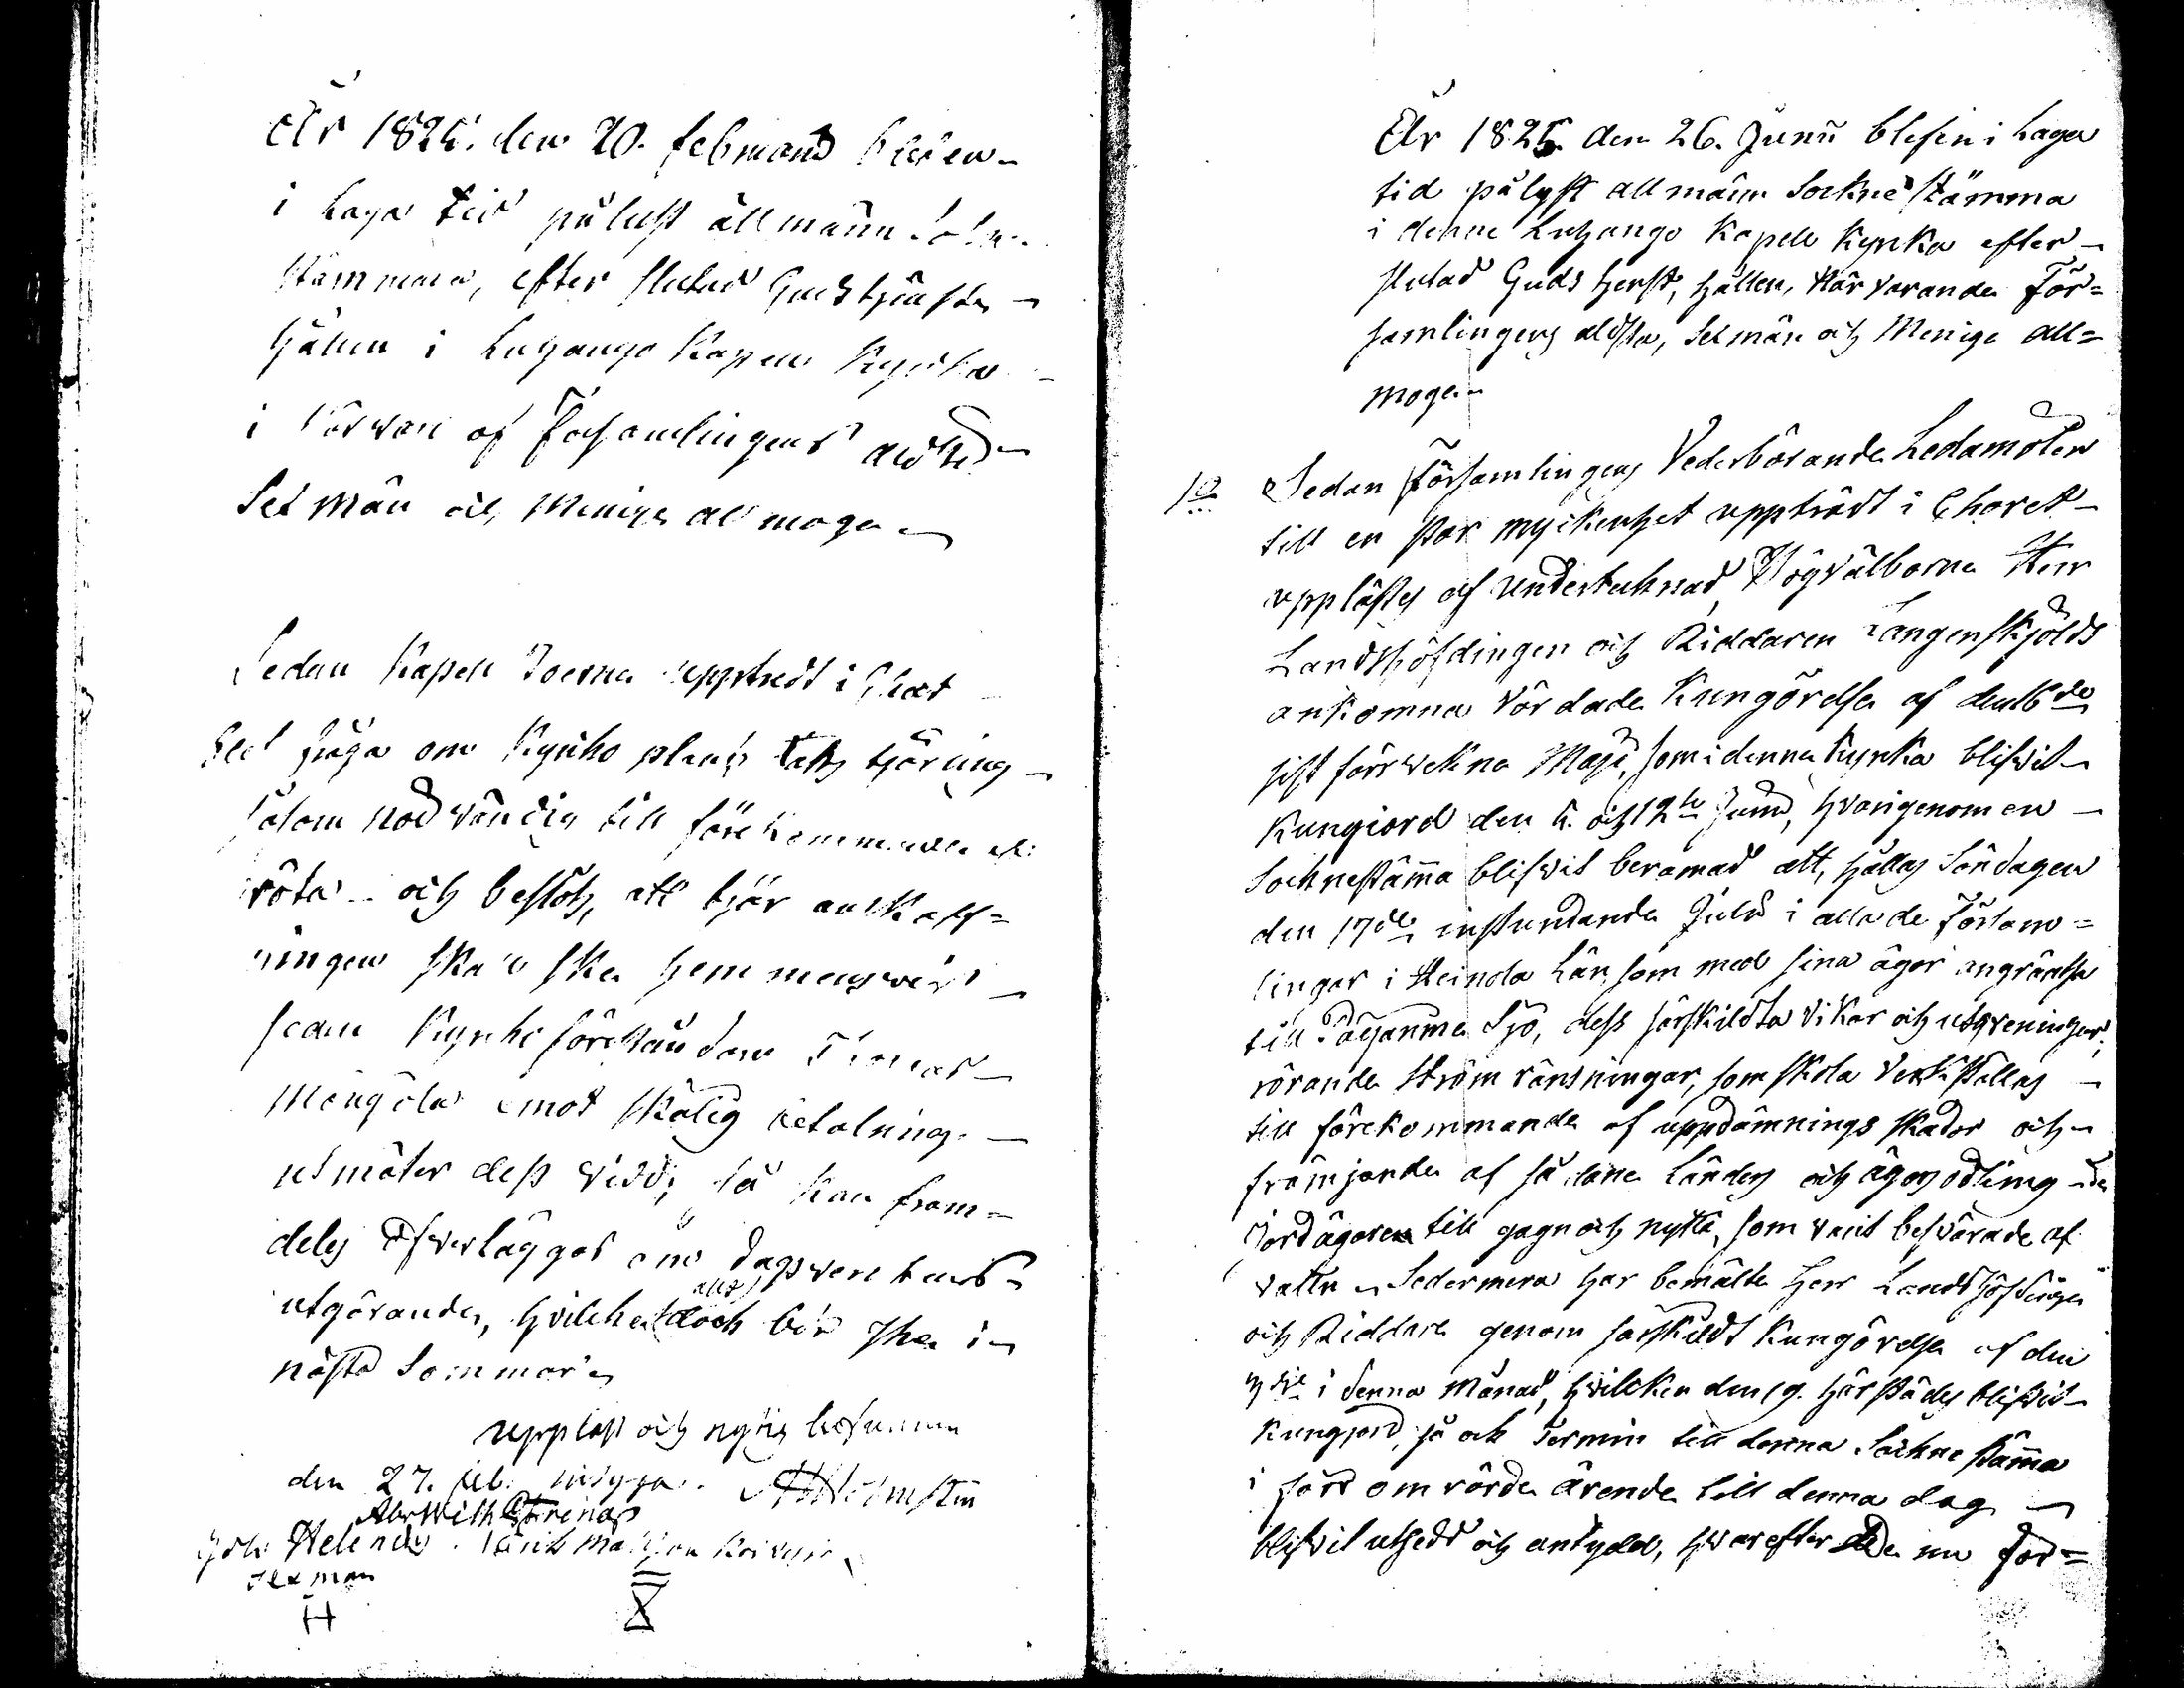 År 1825. den 20. februarii blef en
i Laga tid pålyst allmänn Sokne
stämma, efter slutad Gudstjensten
hållen i Luhango Kapell Kyrka
i närvaro af Församlingens äldste
Sex män och Menige allmogen
Sedan Kapell boerna uppträdt i Choret
blef fråga om Kyrko taks tjäring
såsom nödvändig till förekommande af
röta och beslöts, att tjär anskaff=
ningen skall ske hemmansvis
sedan Kyrko föreståndaren Thomas
Mengälä emot skälig betalning
utmäter dess vidd; så kan fram=
deles öfverläggas om dagsverkens
utgörande, hvilcket allt dock bör ske i
nästa Sommar
uppläst och rigtig befunnen
den 27. feb.
Abr Wilh
Helenius. Erik
sexman
H
År 1825. den 26. Junii blef en i Laga
tid pålyst allmänn Sockne stämma
i denne Luhango Kapell Kyrka efter
slutad Gudstjenst, hållen, närvarande För=
samlingens äldsta, Sexmän och Menige all=
mogen
1o Sedan Församlingens Vederbörande Ledamöter
till en stor myckenhet uppträdt i Choret
upplästes af undertecknad Högvälborne Herr
Landshöfdingen och Riddaren Langenskjölds
ankomna vördade Kungörelse af den 16de
sist förvekne Maji, som i denna Kyrka blifvit
Kungiord den 5. och 12te Junii, hvarigenom en
Socknestämma blifvit beramad att hållas Söndagen
den 17de instundande Julii i alla de Försam=
lingar i Heinola Län, som med sina ägor angränsa
till Päijänne Sjö, dess särskildta vikar och utgreningar,
rörande ström ränsningar, som skola verkställas
till förekommande af uppdämnings skador och
främjande af sådane Länders och ägors odling de
Jordägaren till gagn och nytta, som varit besvärade af
vattn. Sedermera har bemälte Herr Landshöfdingen
och Riddare genom särskildt Kungörelse af den
i denna månad, hvilcken den 19. härstädes blifvit
kungjord, så ock Termin till denna Sockne stämma
i förd omrörde ärende till denna dag
blifvit utsedd och antydd, hvarefter de nu för=